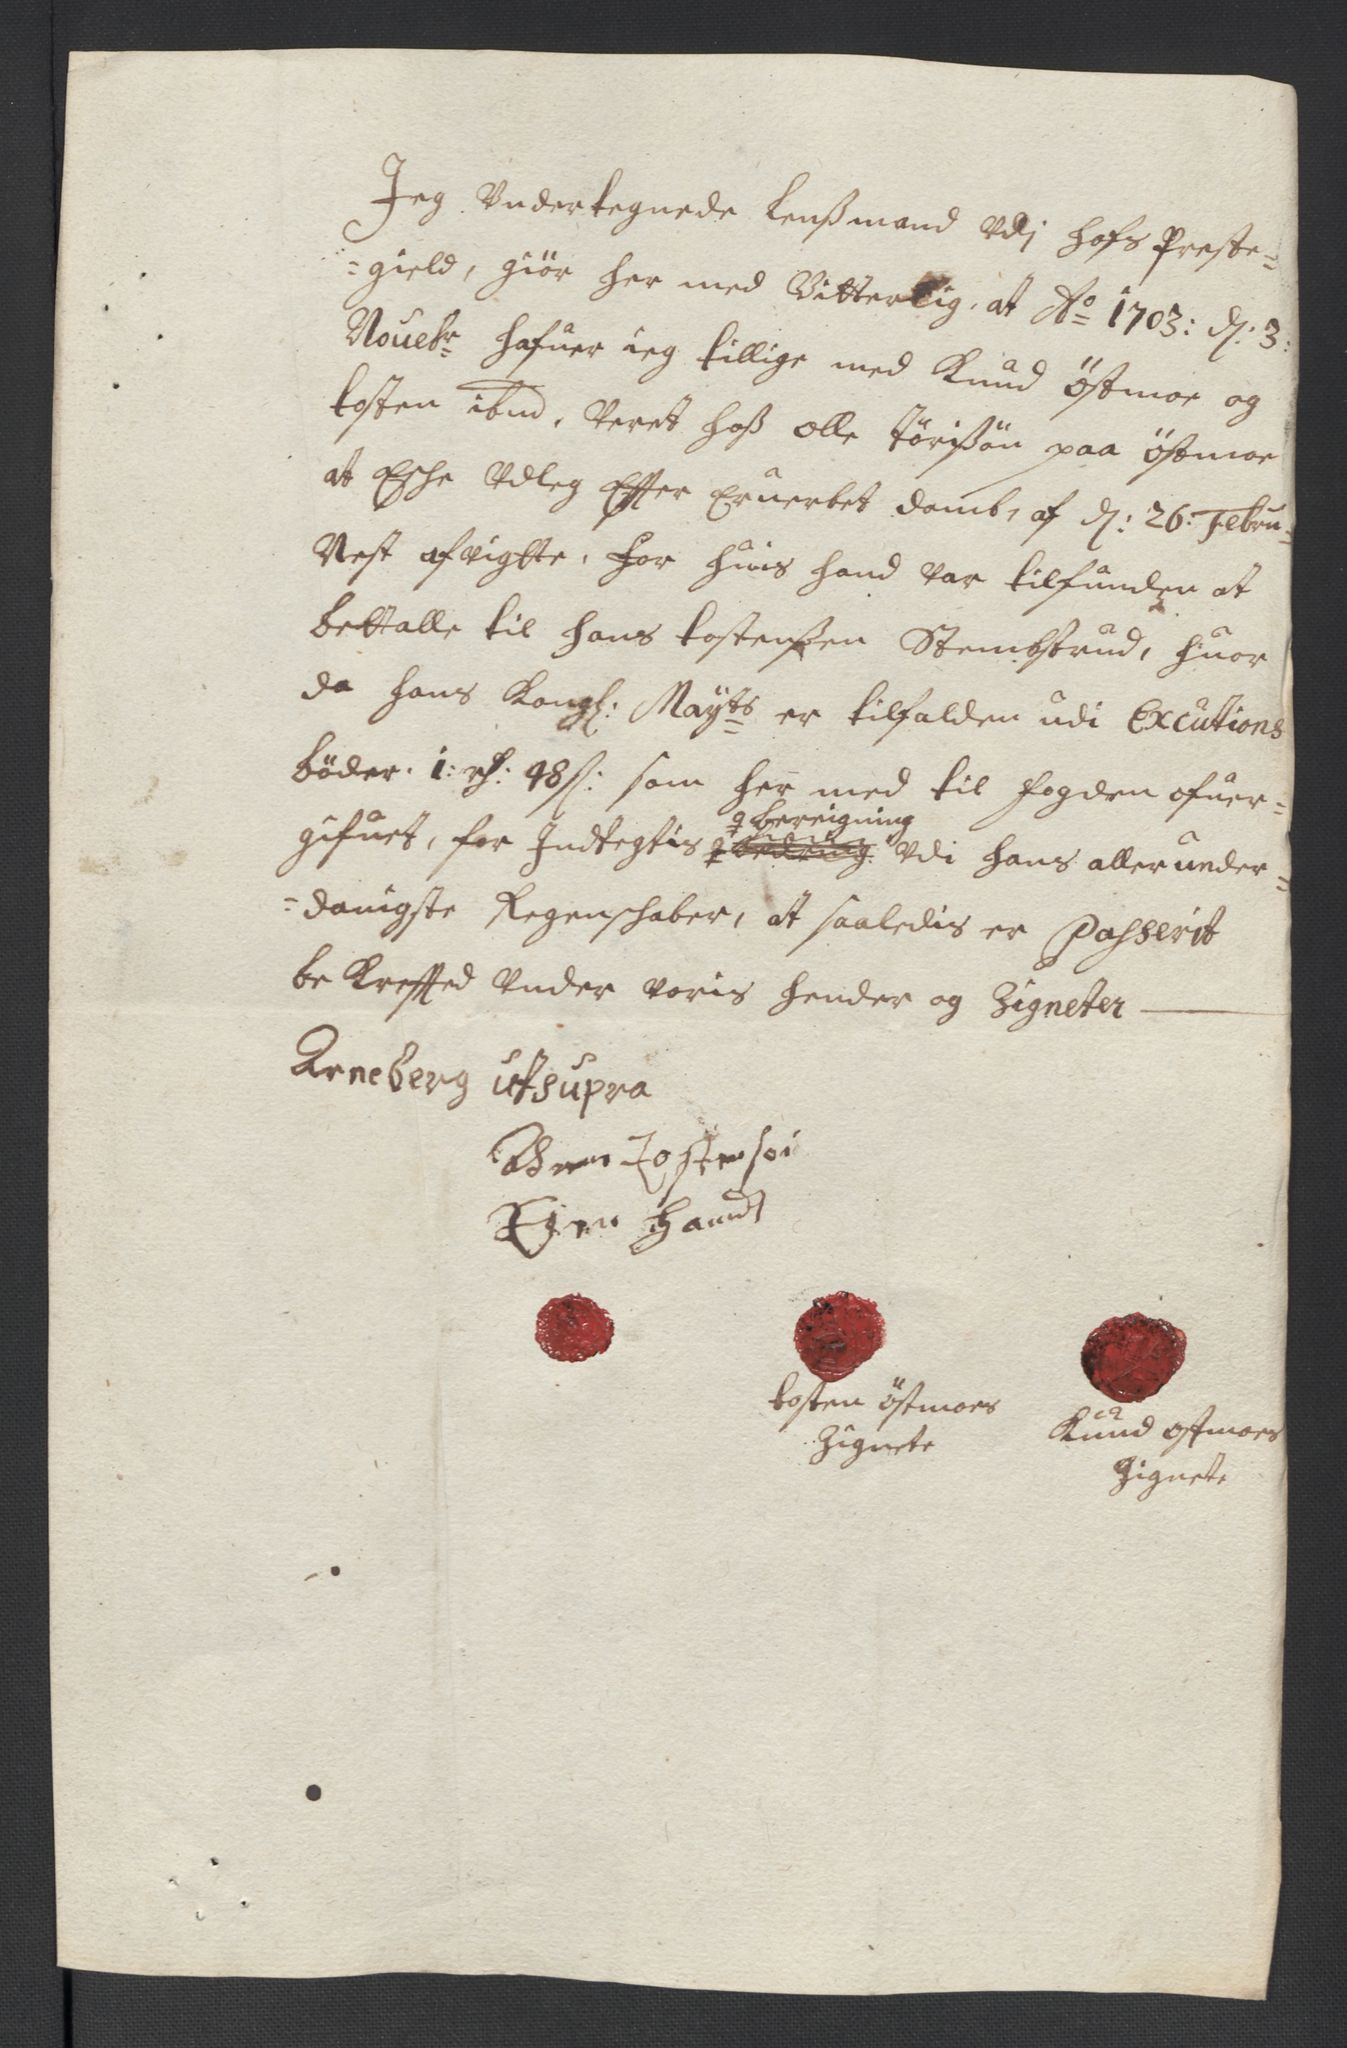 Jeg Vndertegnede Lenßmand Vdj Hofs Preste=
=gield, giör her med Vitterlig, at Ao 1703: d: 3:
Nouebr hafuer ieg tillige med Knud Östmoe og
tosten ibm, Veret hoß olle törisön paa östmoe
at Esche Vdleg Effter Eruerbet domb, af d: 26: Febru=
Nest afvigtte, for huis hand var tilfunden at
bettalle til Hans tostensen Stembsrud, huor
da Hans Kongl: Mayts er tilfalden udi Excutions
böder. 1: rd: 48 s: som her med til fogden ofuer=
gifuet, for Indtegtis
bereigning
Vdi hans allerunder=
=danigste Regenschaber, at saaledis er Passerit
be Kreffted Vnder voris hender og Zigneter
Arneberg ut supra
Tostensøn
Egen Haand
tosten östmoes
Zignete
Knud ostmoes
Zignete